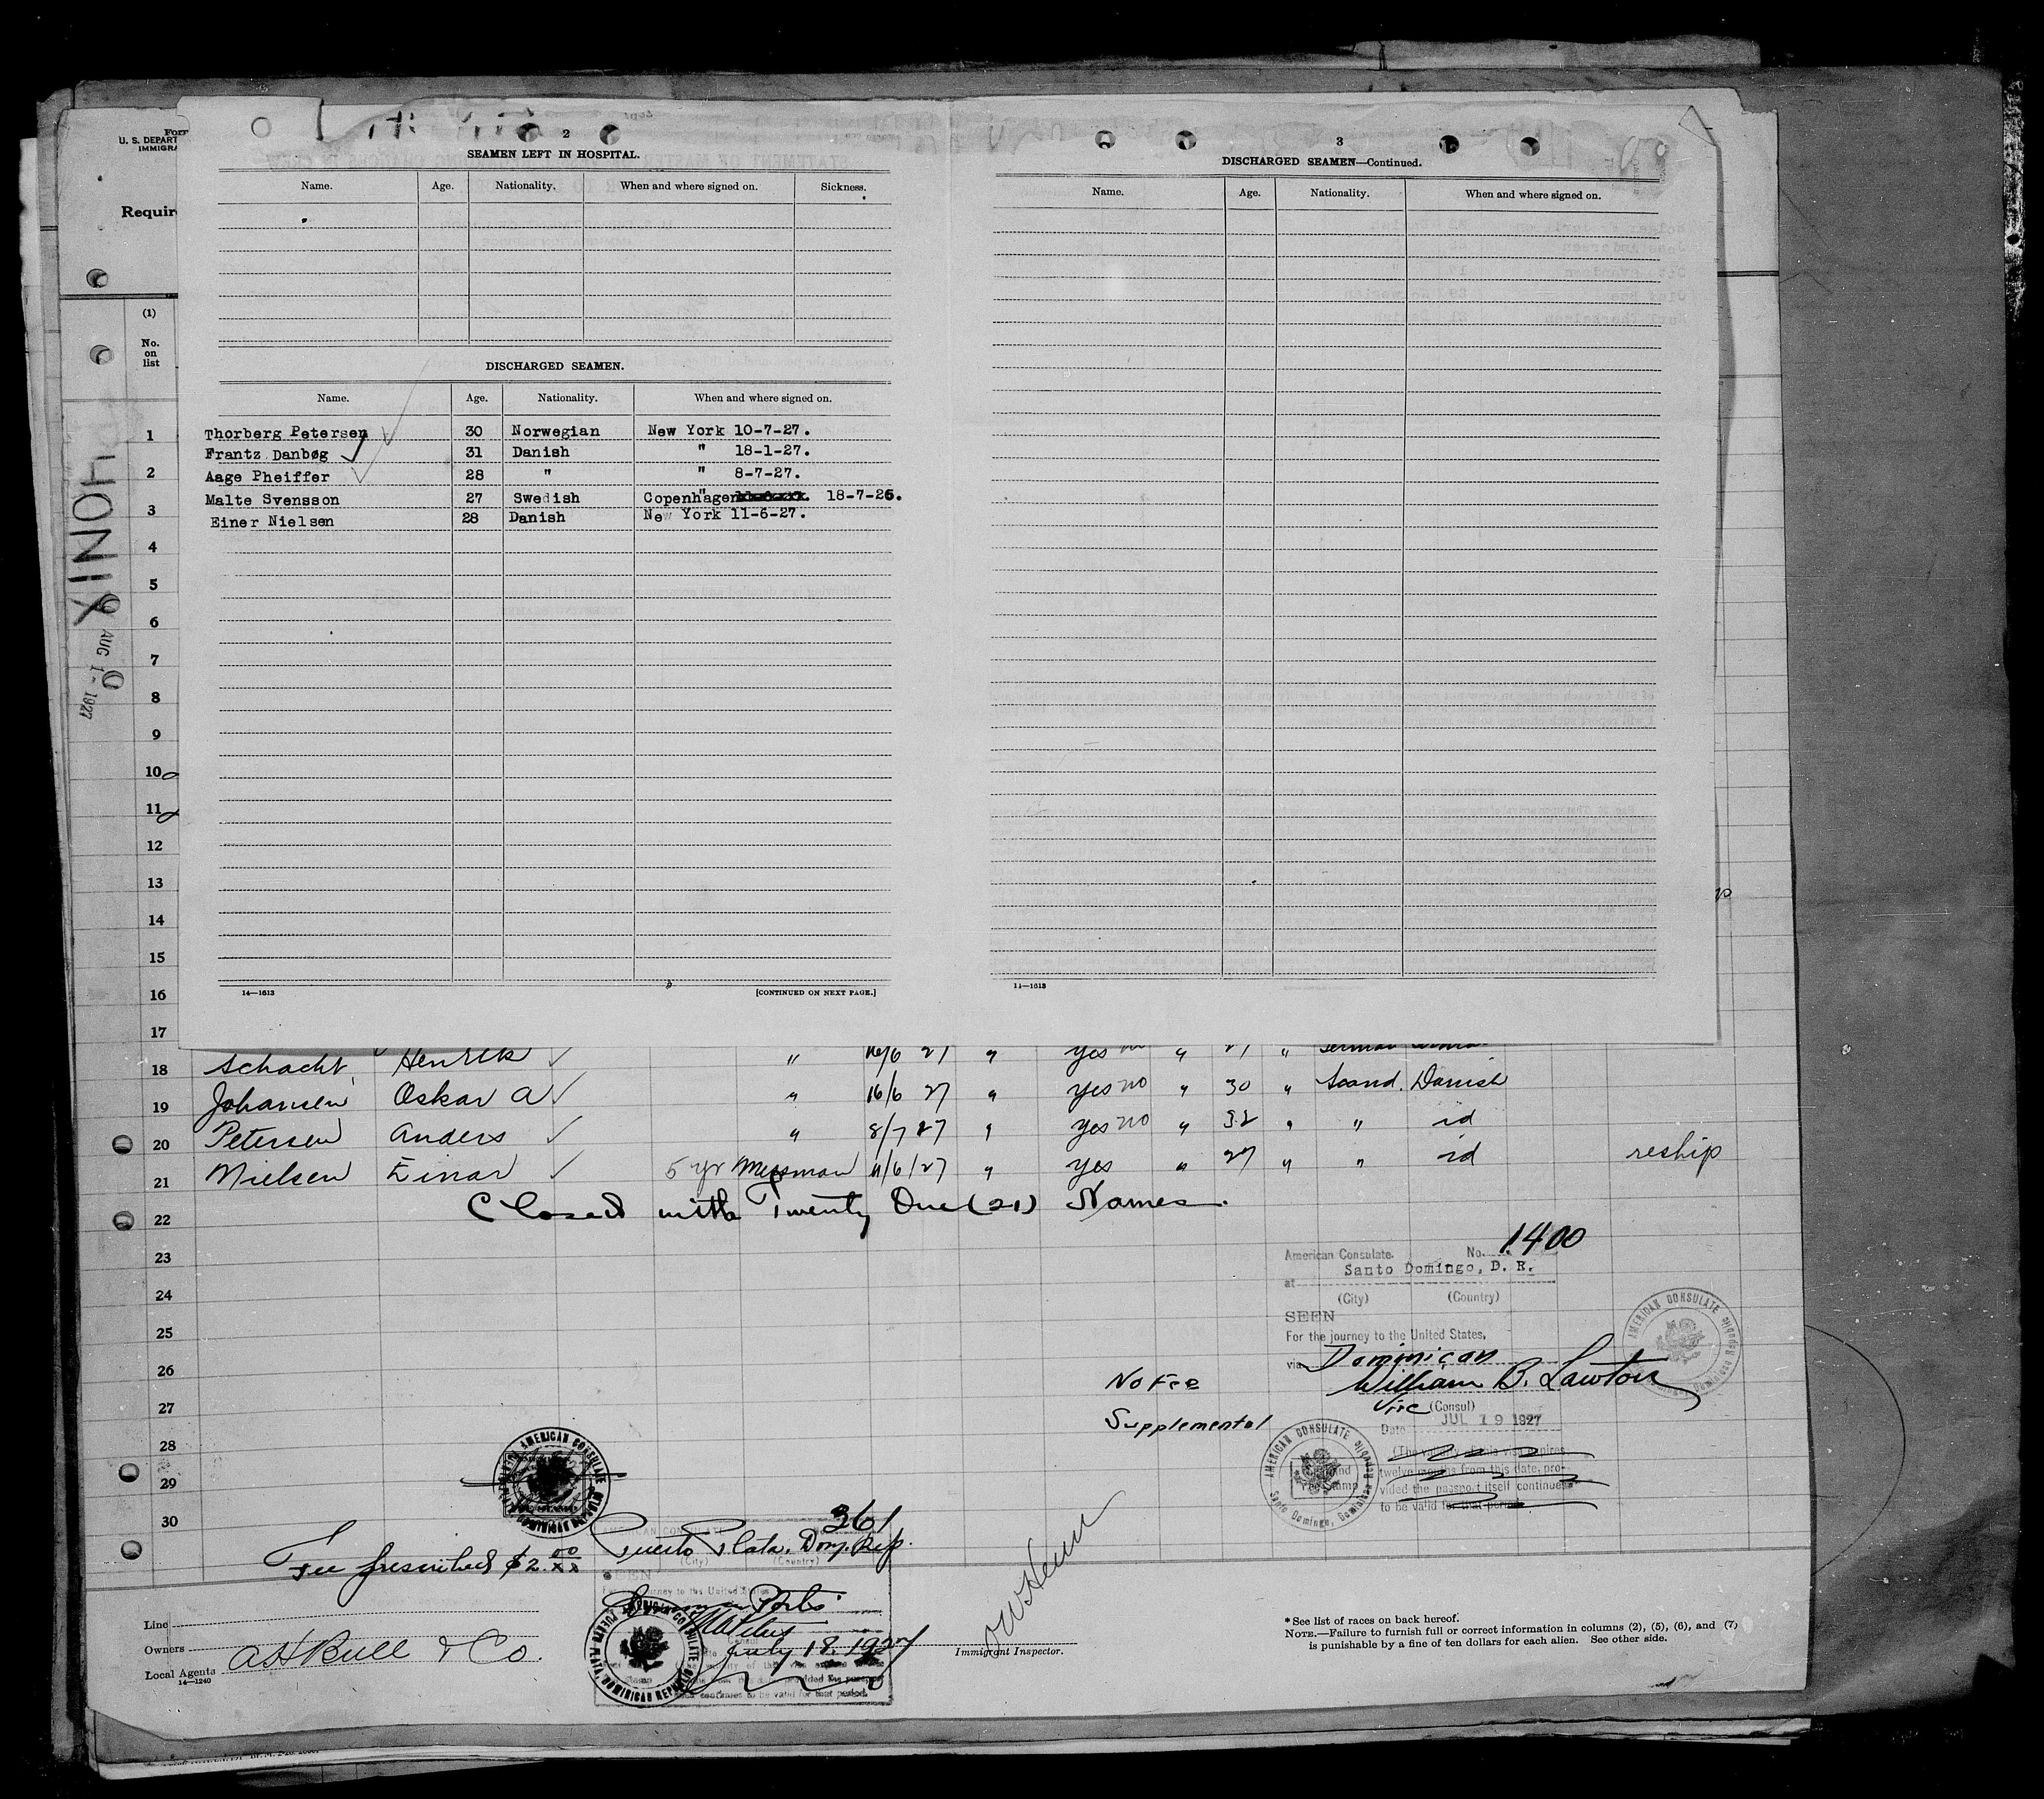 Form
U. S. DEPART
IMMIGRA
Requir
(1)
No.
on
list
HONIX
AUG 1 - 1927
2
SEAMEN LEFT IN HOSPITAL.
Name. Age. Nationality. When and where signed on. Sickness.
DISCHARGED SEAMEN.
Name. Age. Nationality. When and where signed on.
Thorberg Petersen 30 Norwegian New York 10-7-27.
Frantz Danbøg 31 Danish " 18-1-27.
Aage Pheiffer 28 " " 8-7-27.
Malte Svensson 27 Swedish Copenhagen 18-7-26.
Einer Nielsen 28 Danish New York 11-6-27.
14—1613 [CONTINUED ON NEXT PAGE.]
3
DISCHARGED SEAMEN—Continued.
Name. Age. Nationality. When and where signed on.
14—1613
1
2
3
4
5
6
7
8
9
10
11
12
13
14
15
16
17
18 Schacht Henrik ✓ " 16/6 27 " yes no " 27 " German
19 Johansen Oskar A ✓ " 16/6 27 " yes no " 30 " Scand. Danish
20 Petersen Anders ✓ " 8/7 27 " yes no " 32 " " id
21 Nielsen Einar ✓ 5 yr Messman 11/6/27 " yes " 27 " " id reship
22 Closed with Twenty One (21) Names.
23
24
25
26
27
28
29
30
American Consulate. No. 1400
at Santo Domingo, D. R.
(City) (Country)
SEEN
For the journey to the United States,
via Dominican
William B. Lawton
Vice (Consul)
Date JUL 19 1927
(The validity of this visa expires
twelve months from this date, pro-
vided the passport itself continues
to be valid for that period.
No Fee
Supplemental
AMERICAN CONSULATE Santo Domingo, Dominican Republic
AMERICAN CONSULATE Santo Domingo, Dominican Republic
AMERICAN CONSULATE PUERTO PLATA, DOMINICAN REPUBLIC
Fee prescribed $2.00
AMERICAN CONSULATE 361
Puerto Plata, Dom. Rep.
(City) (Country)
SEEN
For the journey to the United States
July 18, 1927
continues to be valid for that period.
AMERICAN CONSULATE PUERTO PLATA, DOMINICAN REPUBLIC
Line
Owners
Local Agents A H Bull & Co.
14—1240
Immigrant Inspector.
*See list of races on back hereof.
NOTE.—Failure to furnish full or correct information in columns (2), (5), (6), and (7)
is punishable by a fine of ten dollars for each alien. See other side.